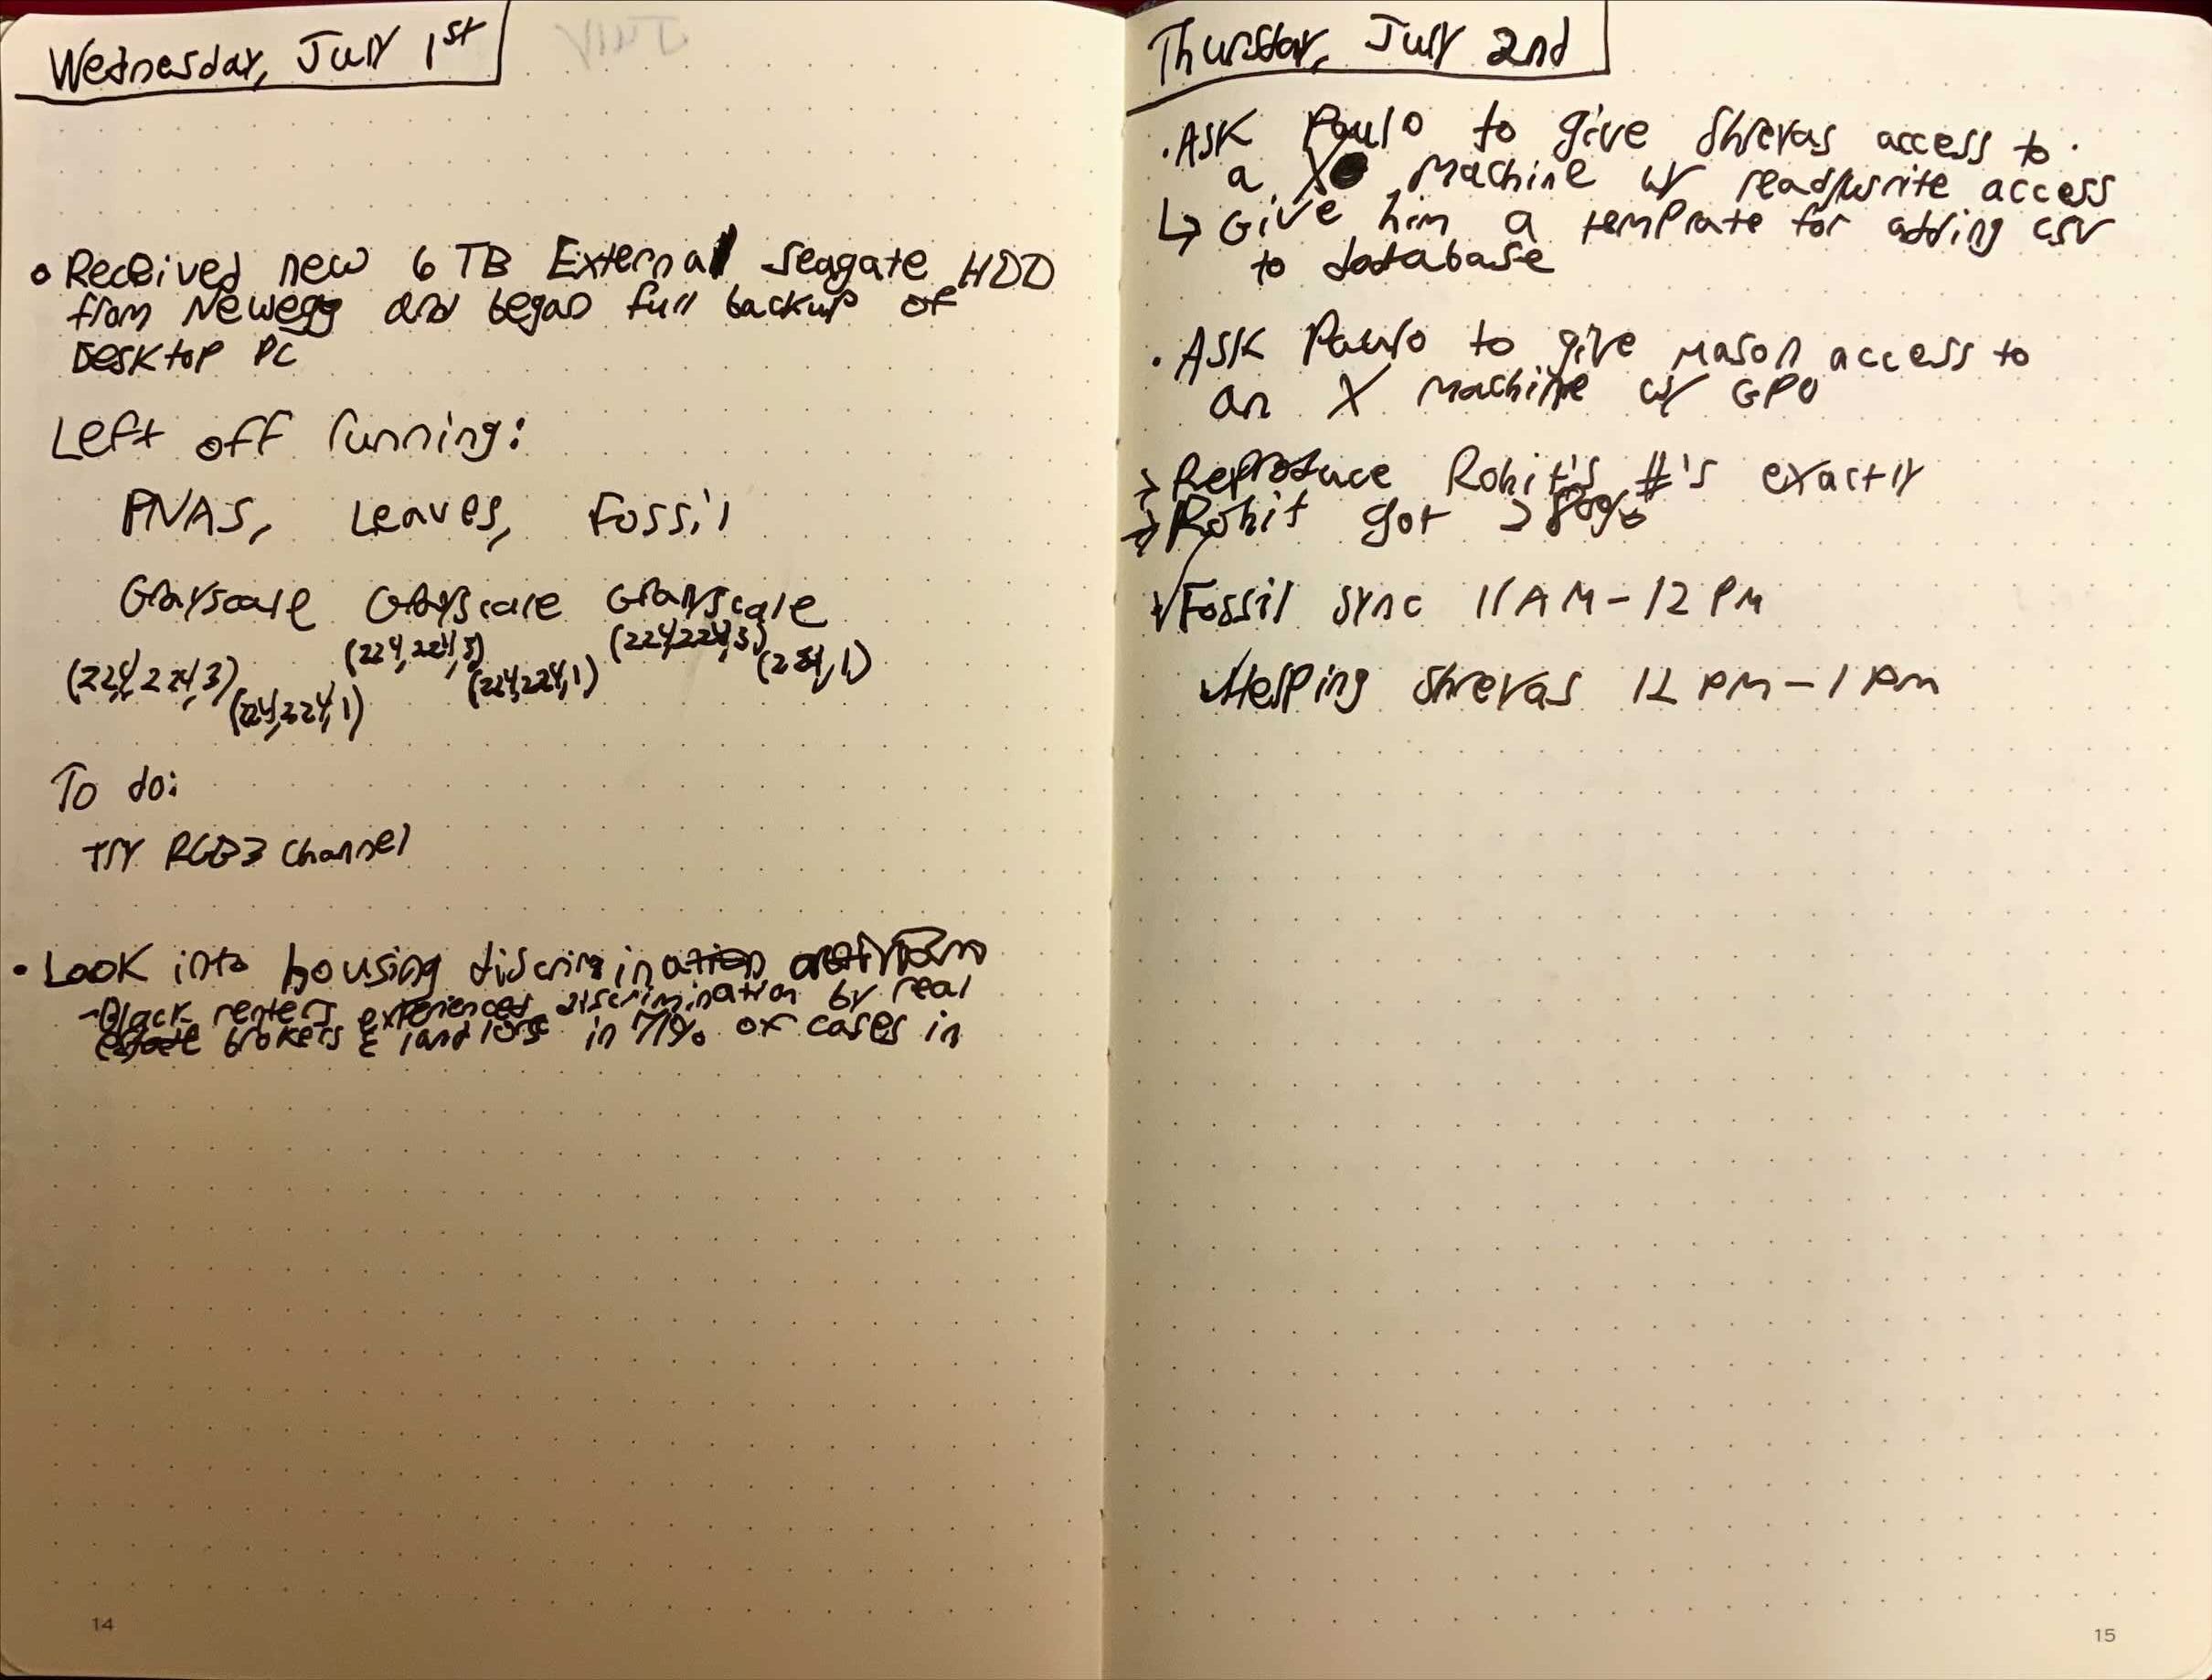 Wednesday, July 1st
• Received new 6 TB External Seagate HDD
from Newegg and began full backup of
Desktop PC
Left off running:
PNAS, Leaves, Fossil
Grayscale Grayscale Grayscale
(224,224,3) (224,224,3) (224,224,3)
(224,224,1) (224,224,1)
To do:
Try RGB 3 channel
• Look into housing discrimination
- Black renters experienced discrimination by real
estate brokers & landlords in 71% of cases in
14
Thursday, July 2nd
• Ask Paulo to give Shreyas access to
a X machine w/ read/write access
↳ Give him a template for adding csv
to database
• Ask Paulo to give Mason access to
an X machine w/ GPU
→ Reproduce Rohit's #'s exactly
→ Rohit got
Fossil sync 11 AM - 12 PM
Helping Shreyas 12 PM - 1 PM
15